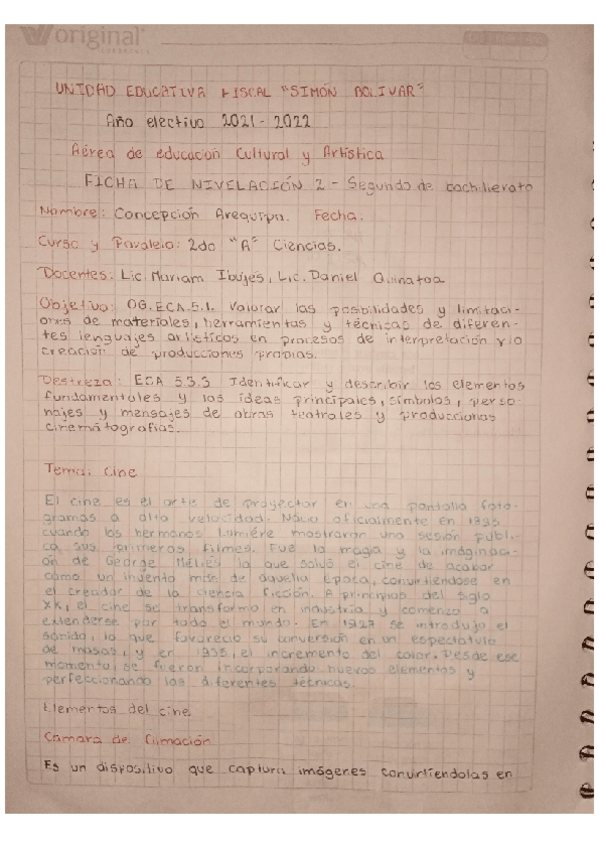 original
UNIDAD EDUCATIVA FISCAL "SIMÓN BOLIVAR"
Año electivo 2021-2022
Aérea de educacion Cultural y Artística
FICHA DE NIVELACIÓN 2 - Segundo de bachillerato
Nombre: Concepción Arequipa. Fecha.
Curso y Paralelo: 2do "A" Ciencias.
Docentes: Lic. Muriam Ibujes, Lic. Daniel Quinatoa
Objetivo: OG.ECA.5.1. Valorar las posibilidades y limitaci-
ones de materiales, herramientas y técnicas de diferen-
tes lenguajes artísticos en procesos de interpretación y/o
creación de producciones propias.
Destreza: ECA 5.3.3 Identificar y describir los elementos
fundamentales y las ideas principales, símbolos, perso-
najes y mensajes de obras teatrales y producciones
cinematografias.
Tema: Cine
El cine es el arte de proyectar en una pantalla foto-
gramas a alta velocidad. Nacio oficialmente en
cuando los hermanos Lumiére mostraron una sesión públi-
ca, sus primeros filmes. Fue la magia y la imaginaci-
ón de George Méliès la que salvó el cine de acabar
como un invento más de aquella época, convirtiéndose en
el creador de la ciencia ficción. A principios del siglo
xx, el cine se transformo en industria y comenzo a
extenderse por todo el mundo. En 1927 se introdujo el
sonido, lo que favoreció su conversión en un espectaculo
de masas, y en 1935, el incremento del color. Desde ese
momento, se fueron incorporando nuevos elementos y
perfeccionando las diferentes técnicas.
Elementos del cine
Camara de Filmación
Es un dispositivo que captura imágenes convirtiendolas en